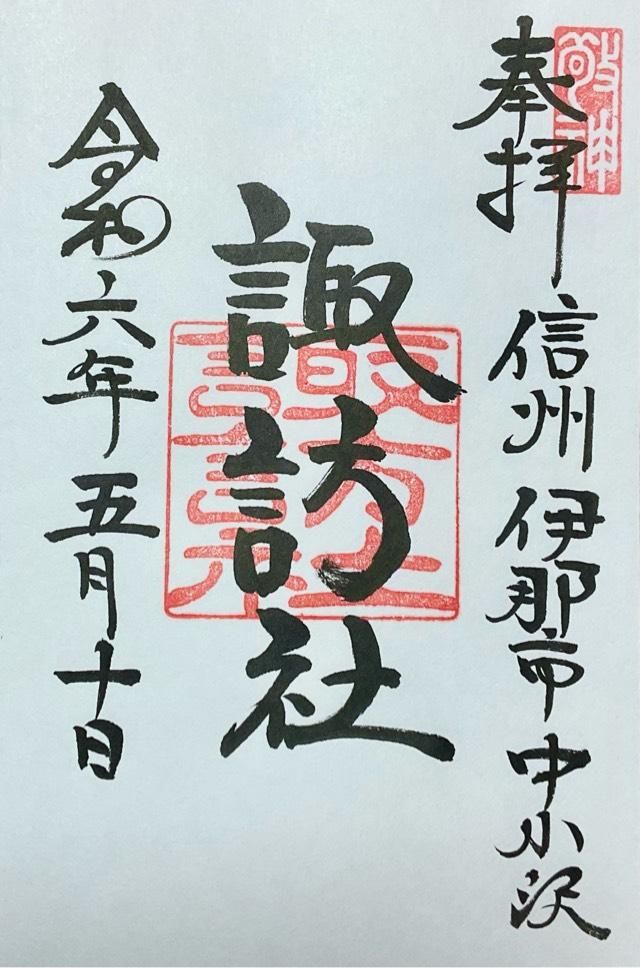 敬神
奉拝 信州 伊那市 中小沢
諏訪社
諏訪社
令和六年五月十日